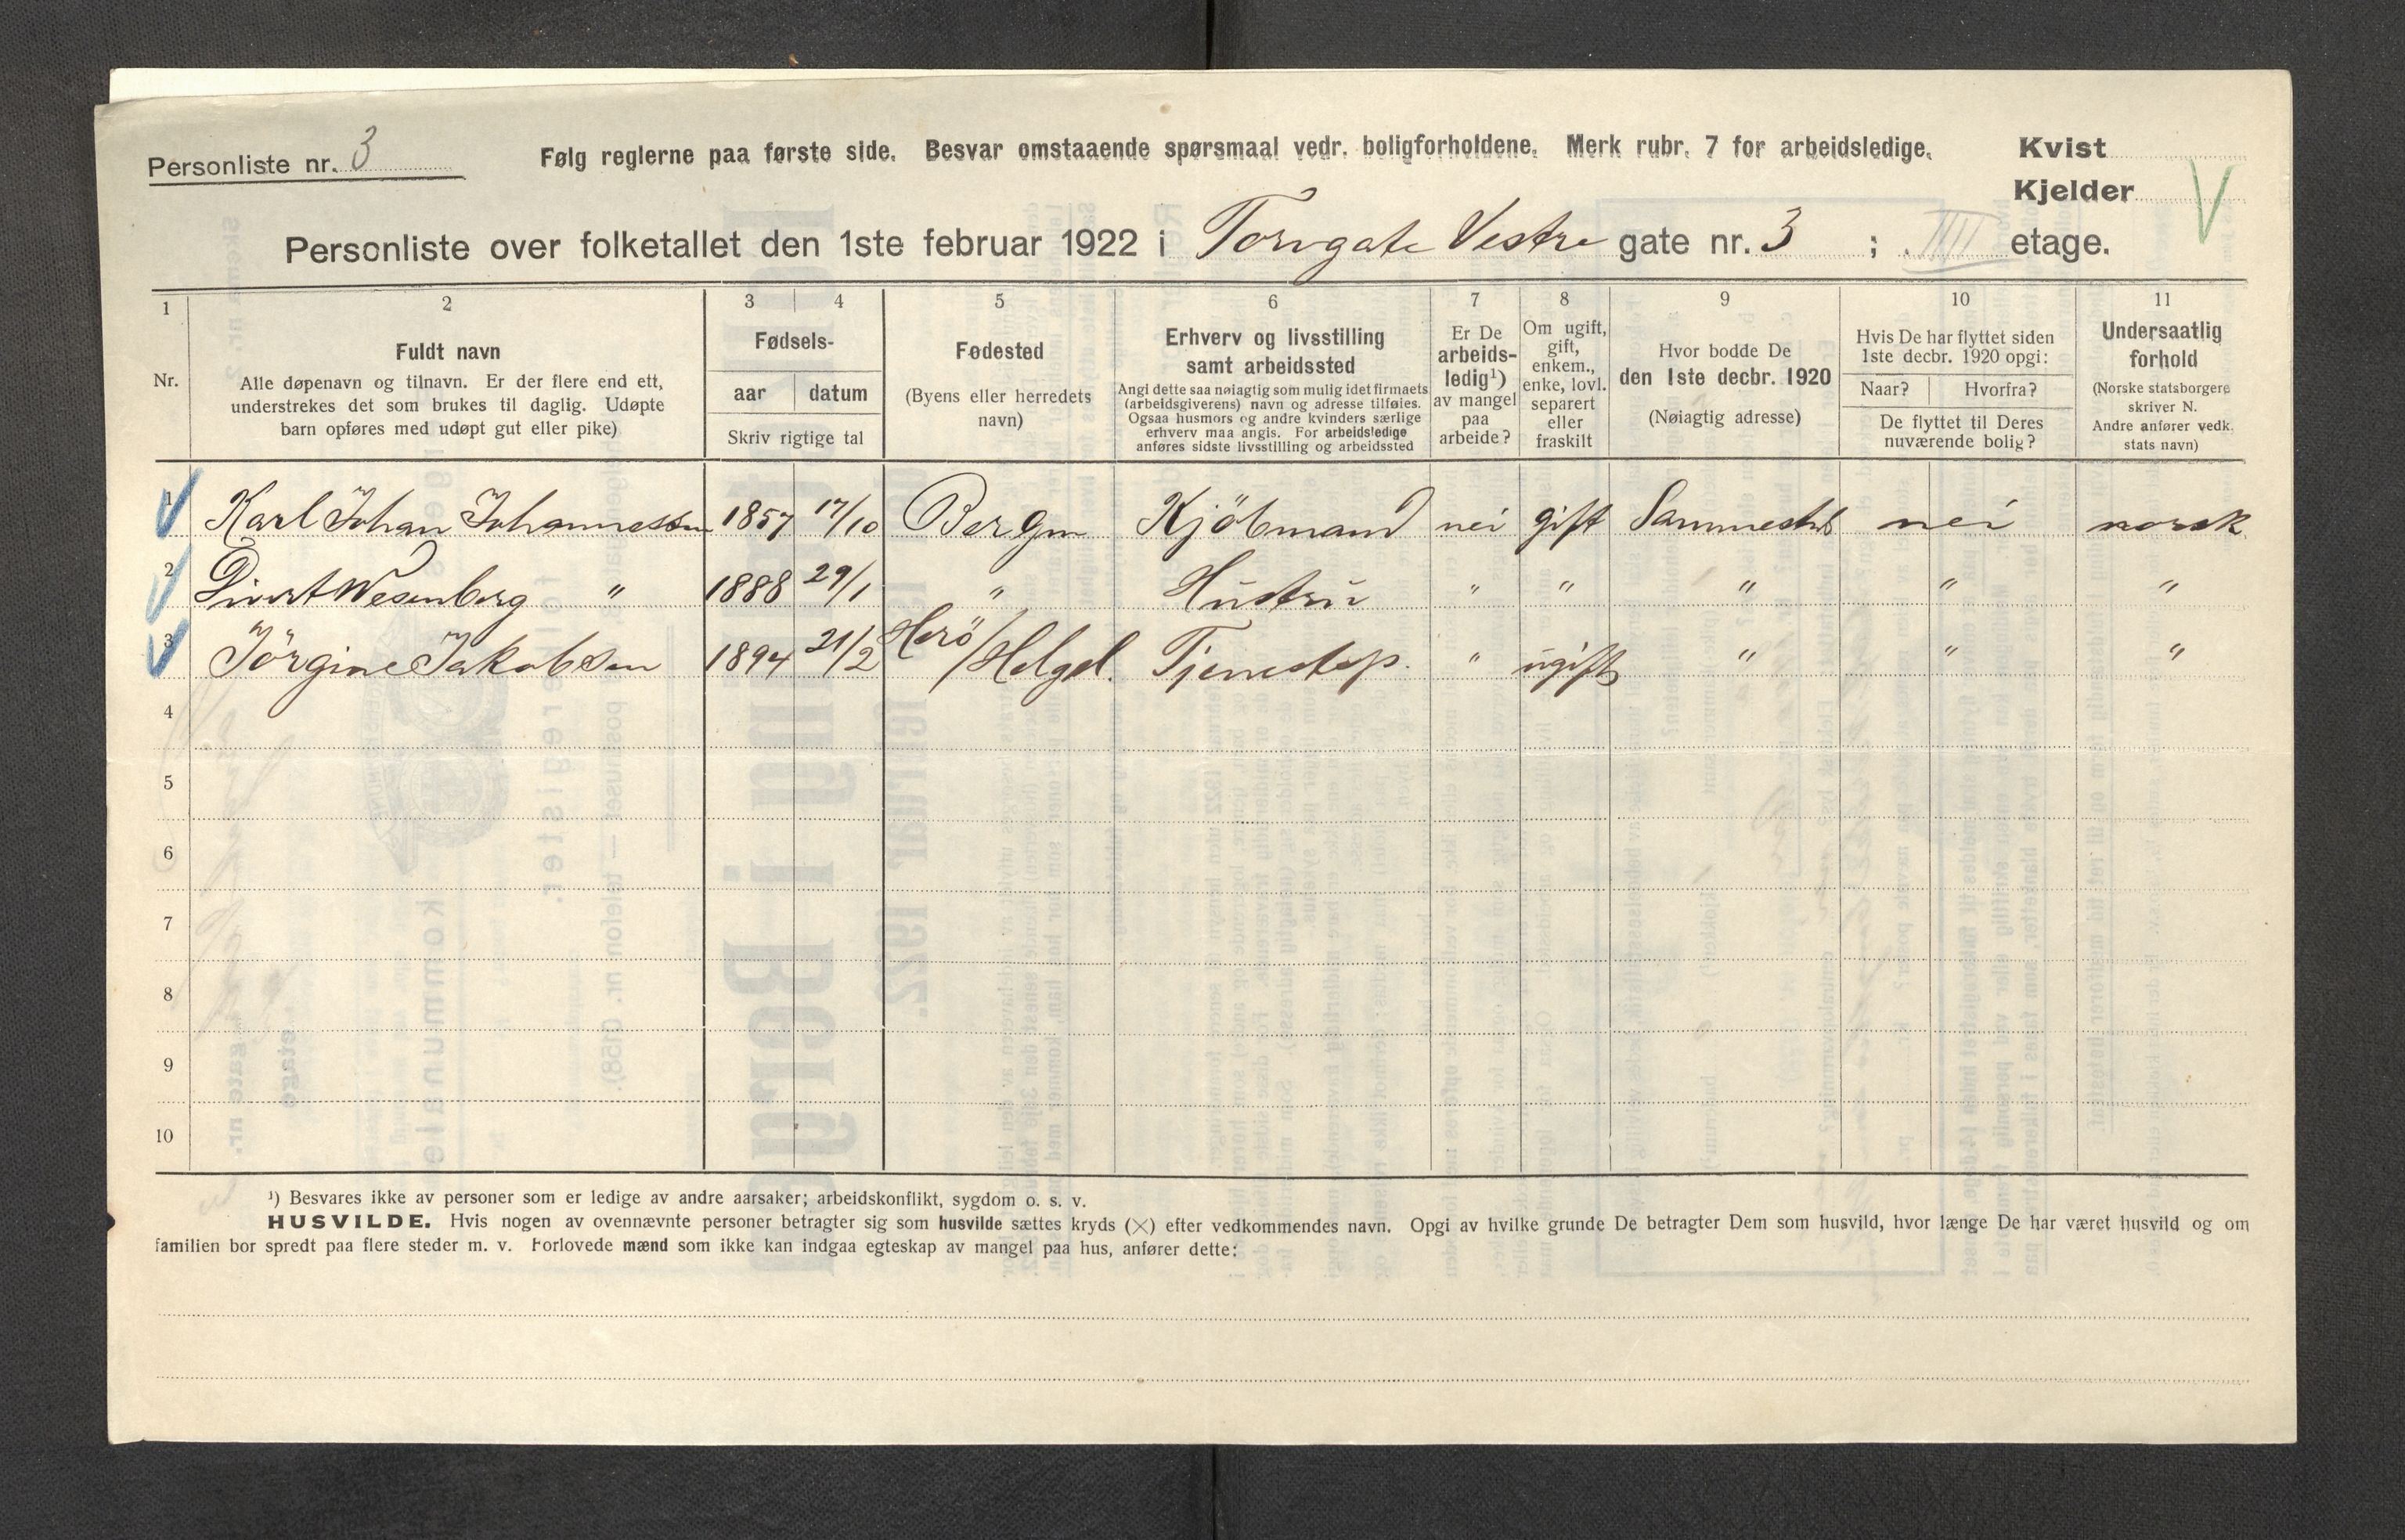 Personliste nr. 3
Følg reglerne paa første side. Besvar omstaaende spørsmaal vedr. boligforholdene. Merk rubr. 7 for arbeidsledige.
Kvist
Kjelder
Personliste over folketallet den 1ste februar 1922 i Torvgate Vestre gate nr. 3 ; IIII etage.
1 2 3 4 5 6 7 8 9 10 11
Nr.
Fuldt navn
Alle døpenavn og tilnavn. Er der flere end ett,
understrekes det som brukes til daglig. Udøpte
barn opføres med udøpt gut eller pike)
Fødsels-
aar datum
Skriv rigtige tal
Fødested
(Byens eller herredets
navn)
Erhverv og livsstilling
samt arbeidssted
Angi dette saa nøiagtig som mulig idet firmaets
(arbeidsgiverens) navn og adresse tilføies.
Ogsaa husmors og andre kvinders særlige
erhverv maa angis. For arbeidsledige
anføres sidste livsstilling og arbeidssted
Er De
arbeids-
ledig¹)
av mangel
paa
arbeide?
Om ugift,
gift,
enkem.,
enke, lovl.
separert
eller
fraskilt
Hvor bodde De
den 1ste decbr. 1920
(Nøiagtig adresse)
Hvis De har flyttet siden
1ste decbr. 1920 opgi:
Naar? Hvorfra?
De flyttet til Deres
nuværende bolig?
Undersaatlig
forhold
(Norske statsborgere
skriver N.
Andre anfører vedk.
stats navn)
1 Karl Johan Johannessen 1857 17/10 Bergen Kjöbmand nei gift Sammesteds nei norsk
2 Wesenberg " 1888 29/1 " Hustru " " " " "
3 Jörgine Jakobsen 1894 21/2 Herö/Helgel. Tjenestep. " ugift " " "
4
5
6
7
8
9
10
¹) Besvares ikke av personer som er ledige av andre aarsaker; arbeidskonflikt, sygdom o. s. v.
HUSVILDE. Hvis nogen av ovennævnte personer betragter sig som husvilde sættes kryds (×) efter vedkommendes navn. Opgi av hvilke grunde De betragter Dem som husvild, hvor længe De har været husvild og om
familien bor spredt paa flere steder m. v. Forlovede mænd som ikke kan indgaa egteskap av mangel paa hus, anfører dette: